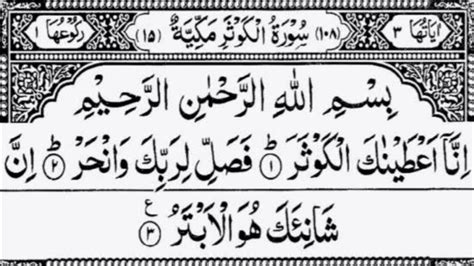 اٰيَاتُهَا ٣ (١٠٨) سُوْرَةُ الْكَوْثَرِ مَكِّيَّةٌ (١٥) رُكُوْعُهَا ١
بِسْمِ اللّٰهِ الرَّحْمٰنِ الرَّحِيْمِ
اِنَّاۤ اَعْطَيْنٰكَ الْكَوْثَرَ ۝١ فَصَلِّ لِرَبِّكَ وَانْحَرْ ۝٢ اِنَّ
شَانِئَكَ هُوَ الْاَبْتَرُ ۝٣ ع